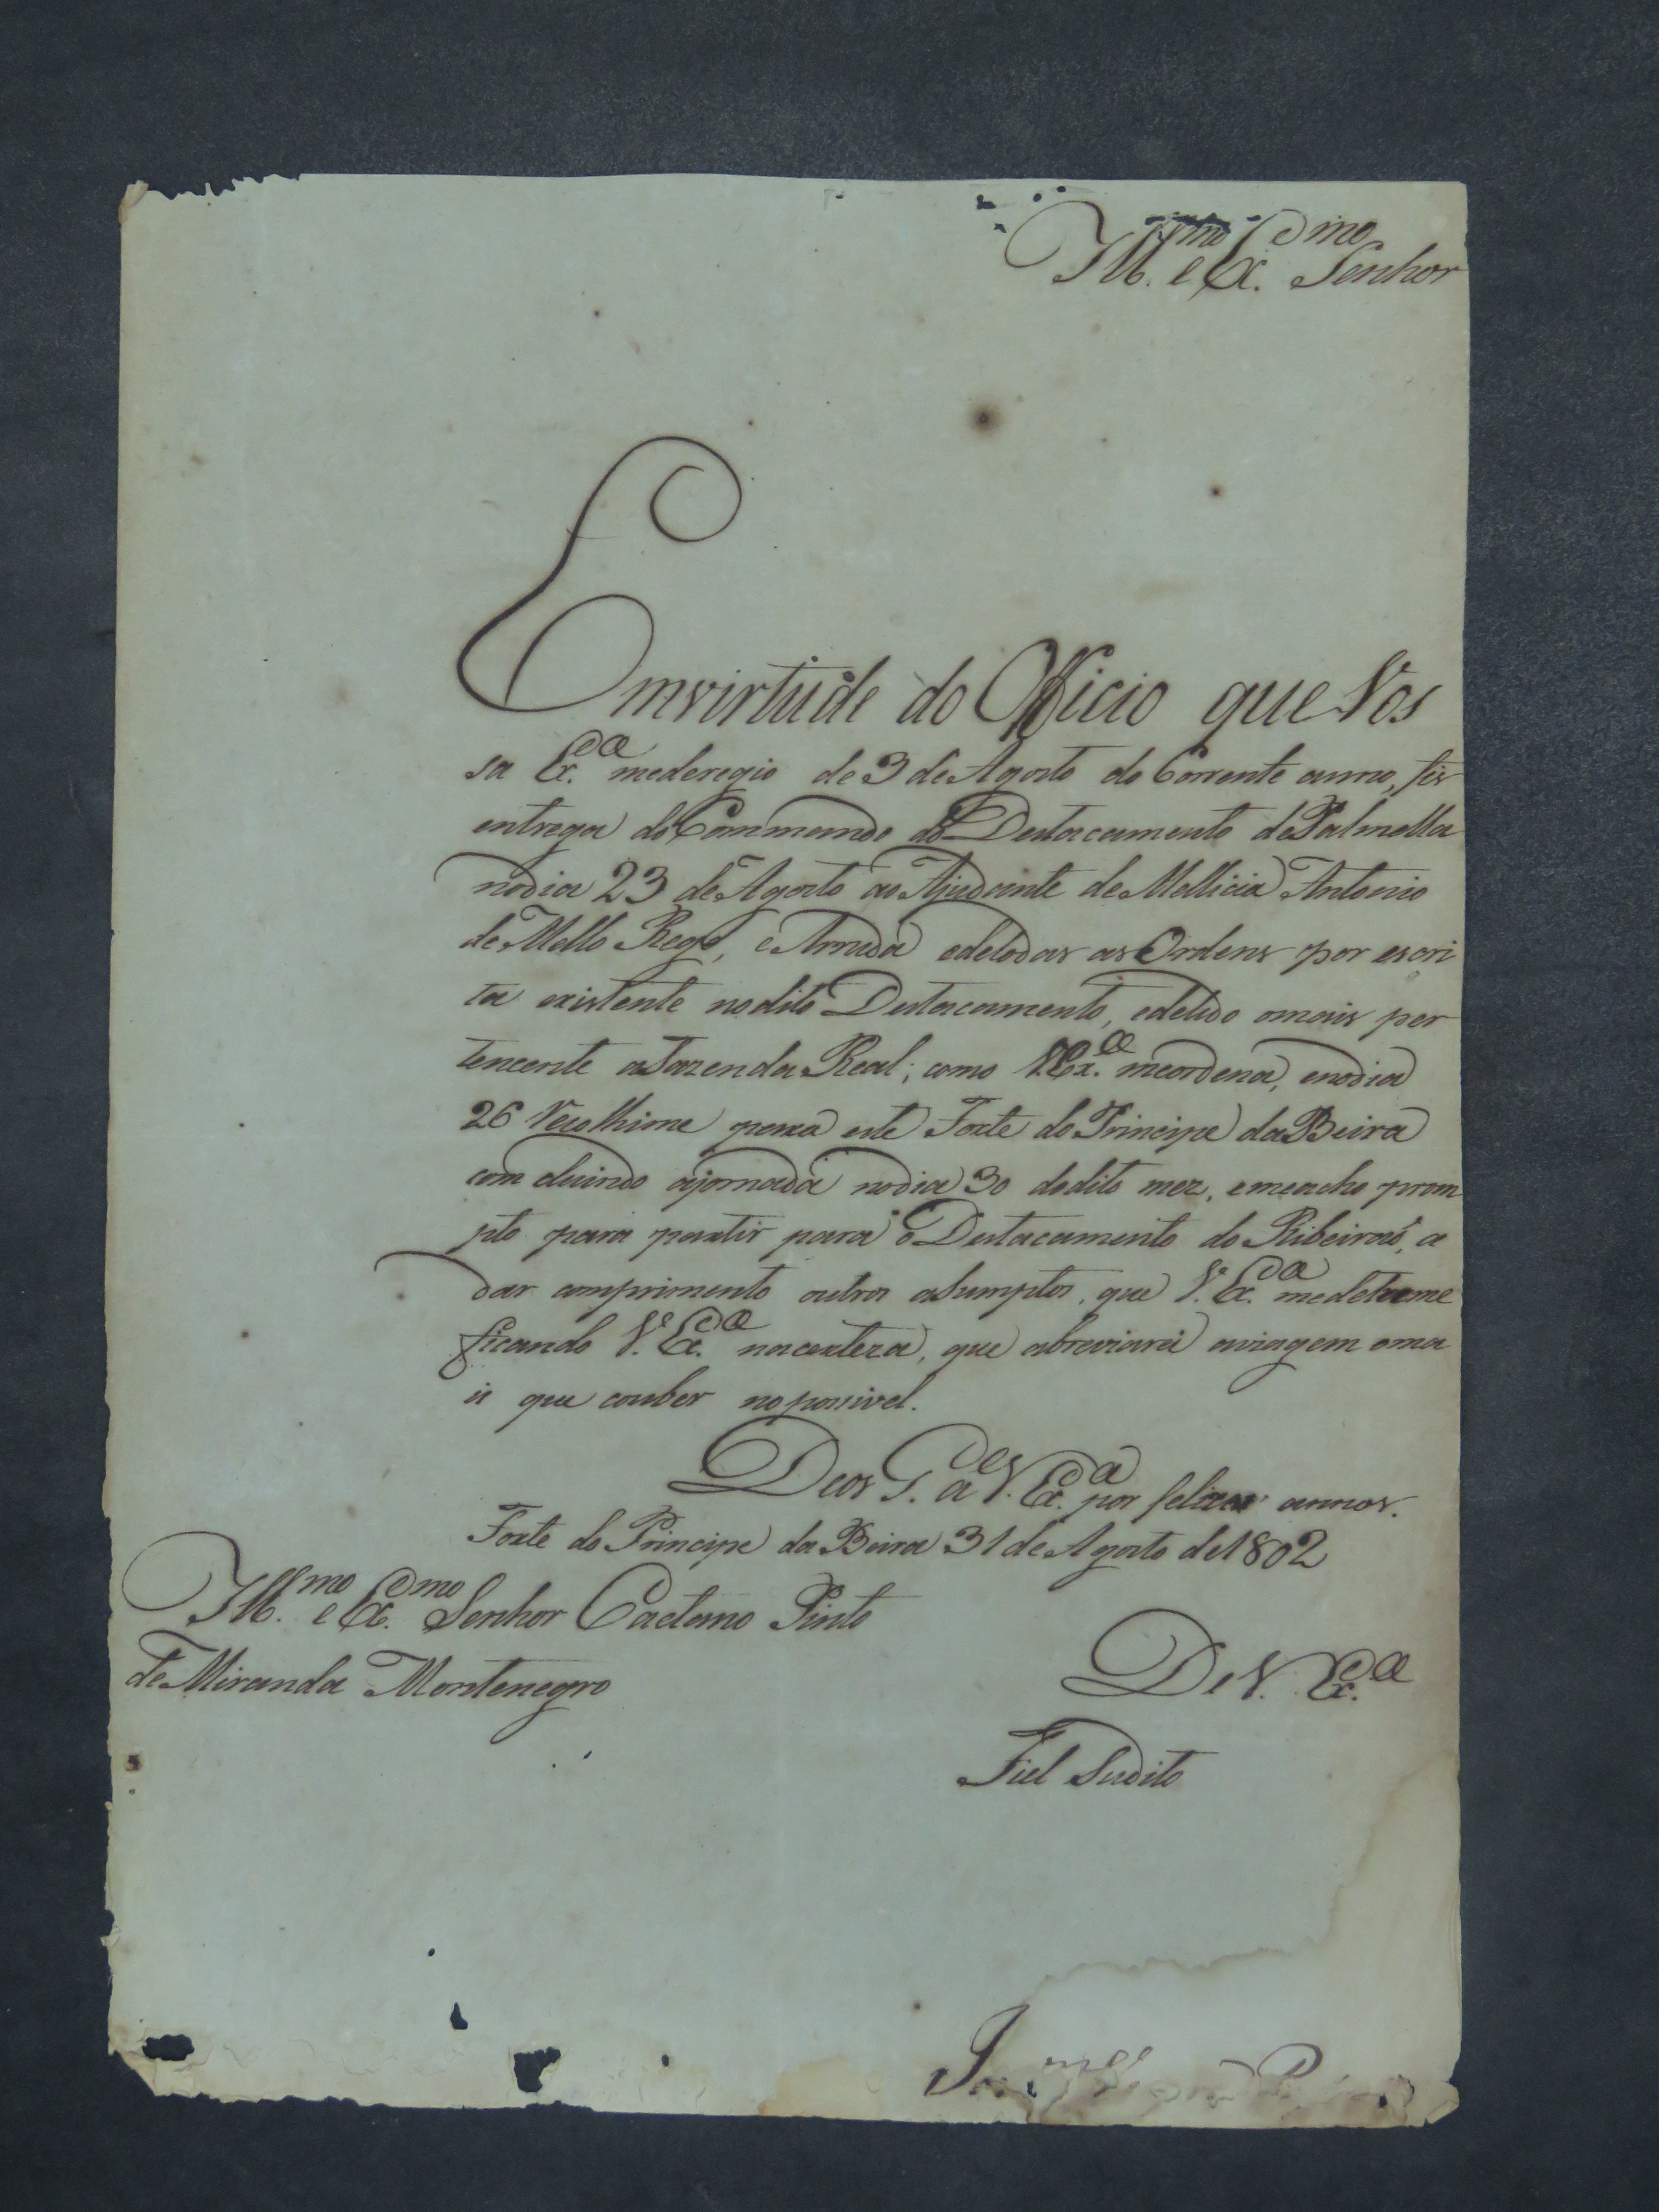 Ill.mo e Ex.mo Senhor
Emvirtude do Officio que Vos
sa Ex.ca mederegio de 3 de Agosto do Corrente anno, fis
entrega do Commando do Destacamento de Palmella
nodia 23 de Agosto ao Ajudante de Mellicia Antonio
de Mello Rego, e Arruda edetodas as Ordens por escri
ta existente nodito Destacamento, edetudo omais per
tencente afazenda Real; como V. Ex.ca meordena, enodia
26 Recolhime para este Forte do Principe da Beira
com cluindo ajornada nodia 30 dodito mez, emeacho prom
pto para partir para o Destacamento do Ribeiraõ, a
dar comprimento outros asumptos, que V.ª Ex.ca
ficando V.ª Ex.ca nacerteza, que abreviarei aviagem oma
is que couber noposivel.
Deos G.de a V. Ex.ca por felizes annos.
Forte do Principe da Beira 31 de Agosto de 1802
Ill.mo e Ex.mo Senhor Caetano Pinto
de Miranda Montenegro
De V. Ex.ca
Fiel Sudito